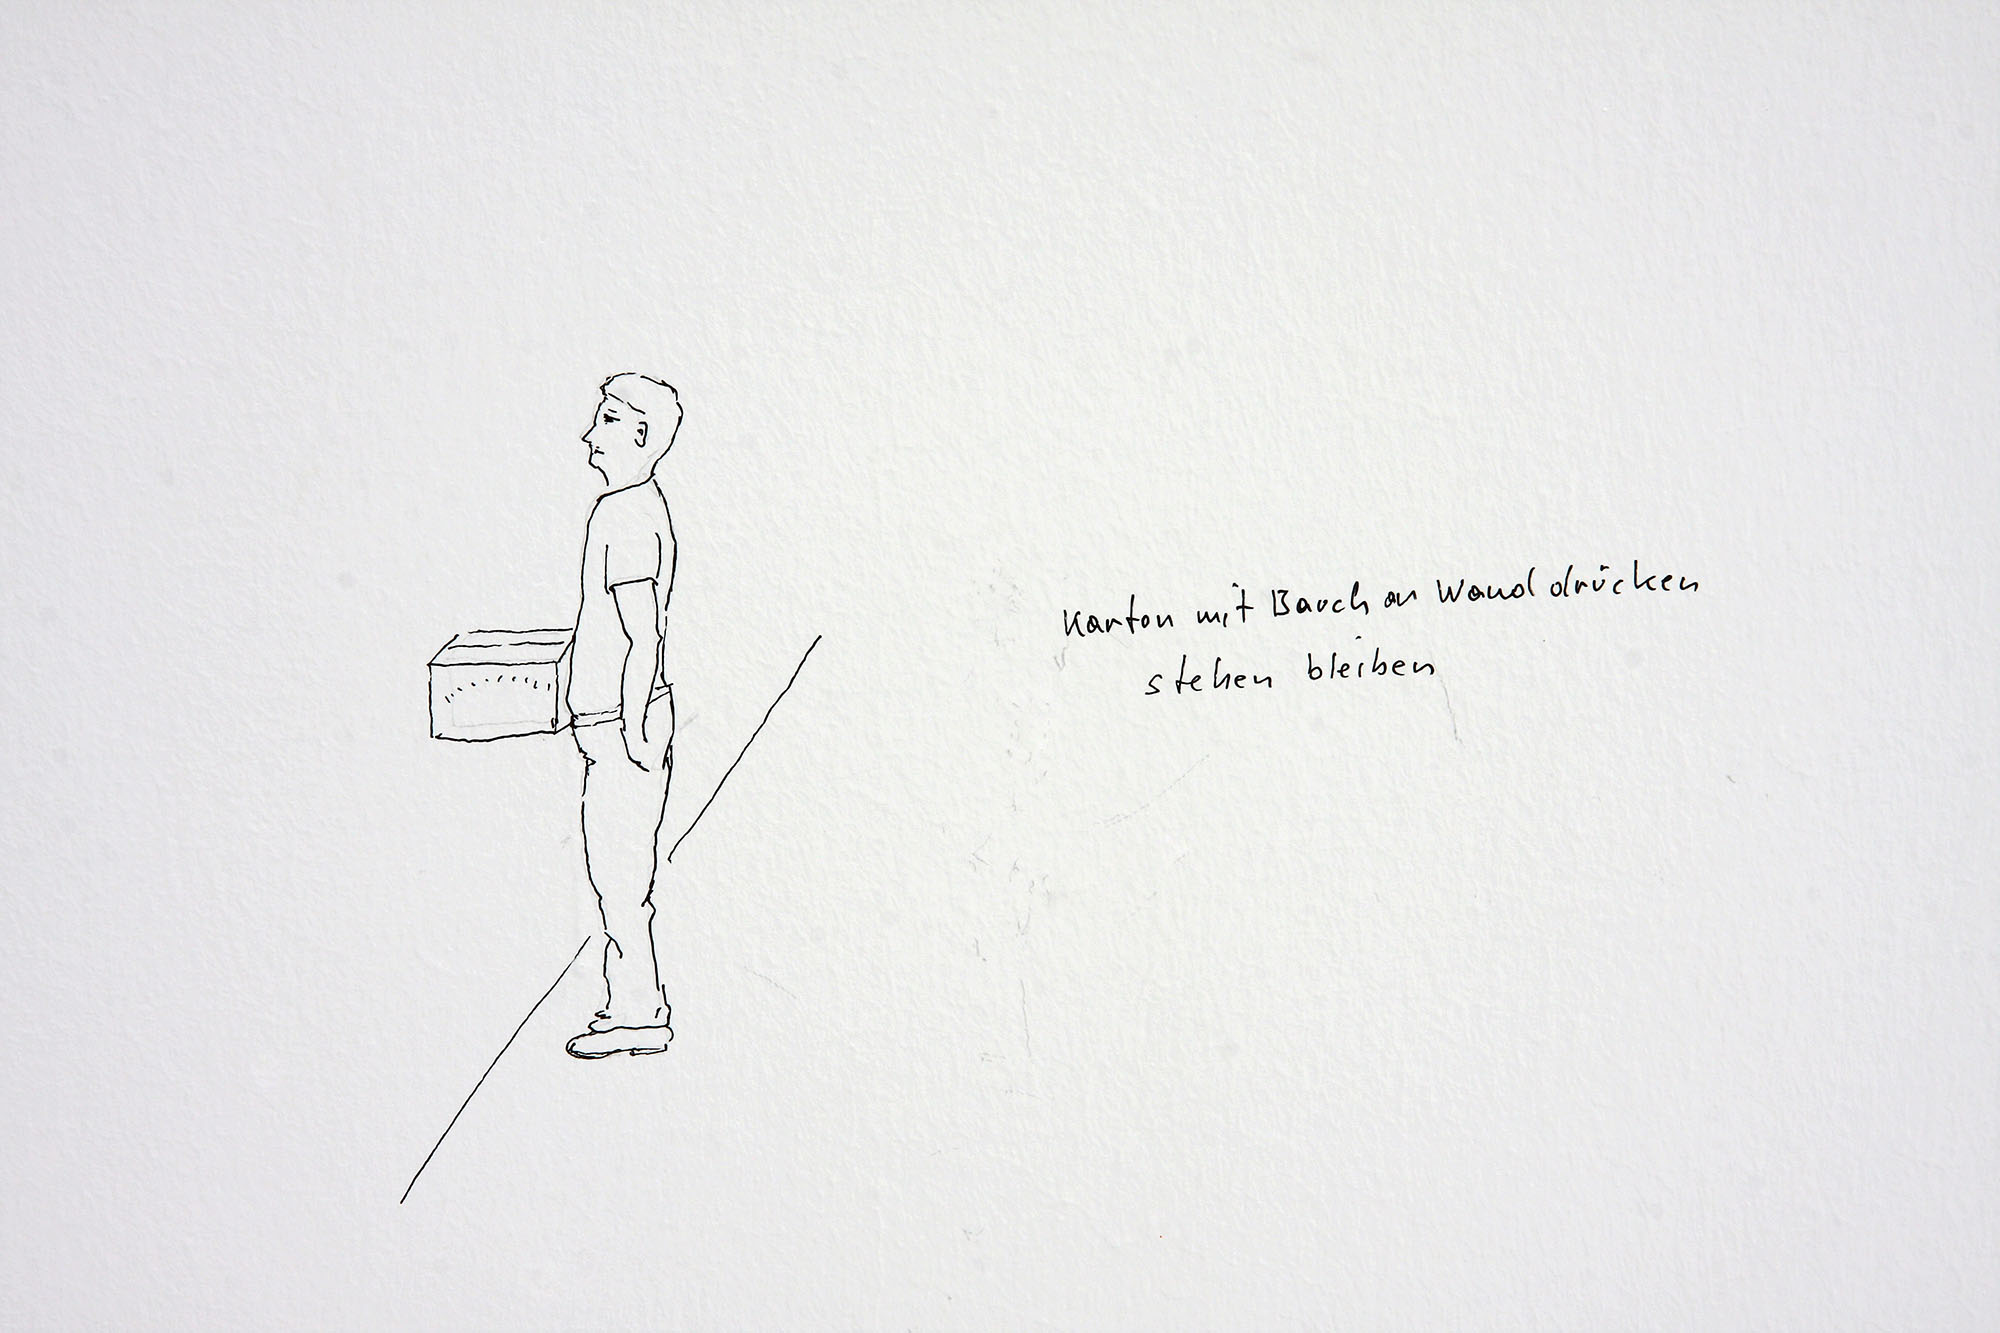 Karton mit Bauch an Wand drücken
stehen bleiben